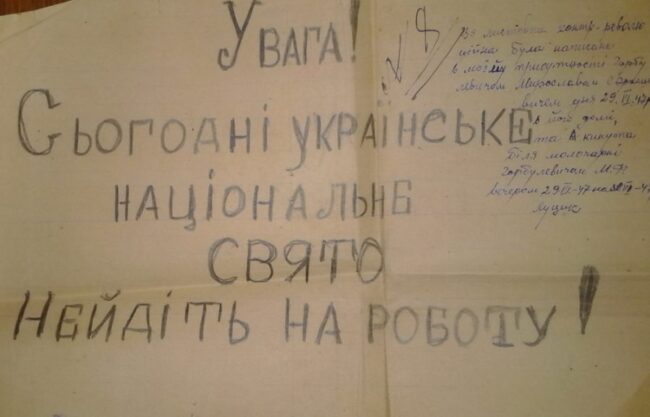 УВАГА!
СЬОГОДНІ УКРАЇНСЬКЕ
НАЦІОНАЛЬНЕ
СВЯТО
НЕЙДІТЬ НА РОБОТУ!
листовка контр-револю
ційна була написана
в моєму присутності Горбу
левичом Мирославом
вичем дня 29.VI-47
в його домі,
та кинута
біля молочарні
Горбулевичом М.
вечером 29 VI-47 на VI-47